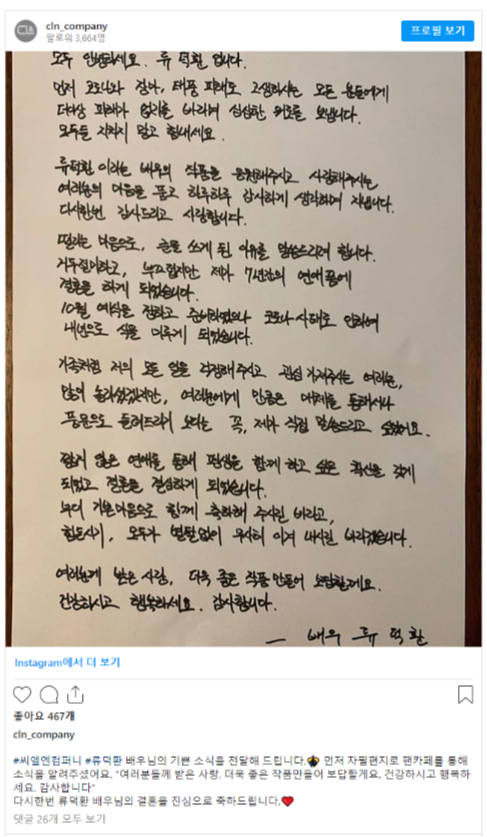 cln_company
팔로워 3,664명
프로필 보기
모두 안녕하세요. 류 덕환 입니다.
먼저 코로나와 장마, 태풍 피해로 고생하시는 모든 분들에게
더이상 피해가 없기를 바라며 심심한 위로를 보냅니다.
모두들 지치지 말고 힘내세요.
류덕환 이라는 배우의 작품을 응원해주시고 사랑해주시는
여러분의 마음을 품고 하루하루 감사하게 생각하며 지냅니다.
다시한번 감사드리고 사랑합니다.
떨리는 마음으로, 글을 쓰게 된 이유를 말씀드리려 합니다.
거두절미하고, 부끄럽지만 제가 7년간의 연애 끝에
결혼을 하게 되었습니다.
10월 예식을 정하고 준비하였으나 코로나 사태로 인하여
내년으로 식을 미루게 되었습니다.
가족처럼 저의 모든 일을 걱정해주시고 관심 가져주시는 여러분,
많이 놀라셨겠지만, 여러분에게 만큼은 매체를 통해서나
풍문으로 들려드리기 보다는 꼭, 제가 직접 말씀드리고 싶었어요.
짧지 않은 연애를 통해 평생을 함께 하고 싶은 확신을 갖게
되었고 결혼을 결심하게 되었습니다.
부디 기쁜마음으로 함께 축하해 주시길 바라고,
힘든시기, 모두가 별탈없이 무사히 이겨 내시길 바라겠습니다.
여러분께 받은 사랑, 더욱 좋은 작품 만들어 보답할게요.
건강하시고 행복하세요. 감사합니다.
— 배우 류 덕환
Instagram에서 더 보기
좋아요 467개
cln_company
#씨엘엔컴퍼니 #류덕환 배우님의 기쁜 소식을 전달해 드립니다. 먼저 자필편지로 팬카페를 통해
소식을 알려주셨어요. "여러분들께 받은 사랑, 더욱 좋은 작품만들어 보답할게요. 건강하시고 행복하
세요. 감사합니다"
다시한번 류덕환 배우님의 결혼을 진심으로 축하드립니다.❤️
댓글 26개 모두 보기